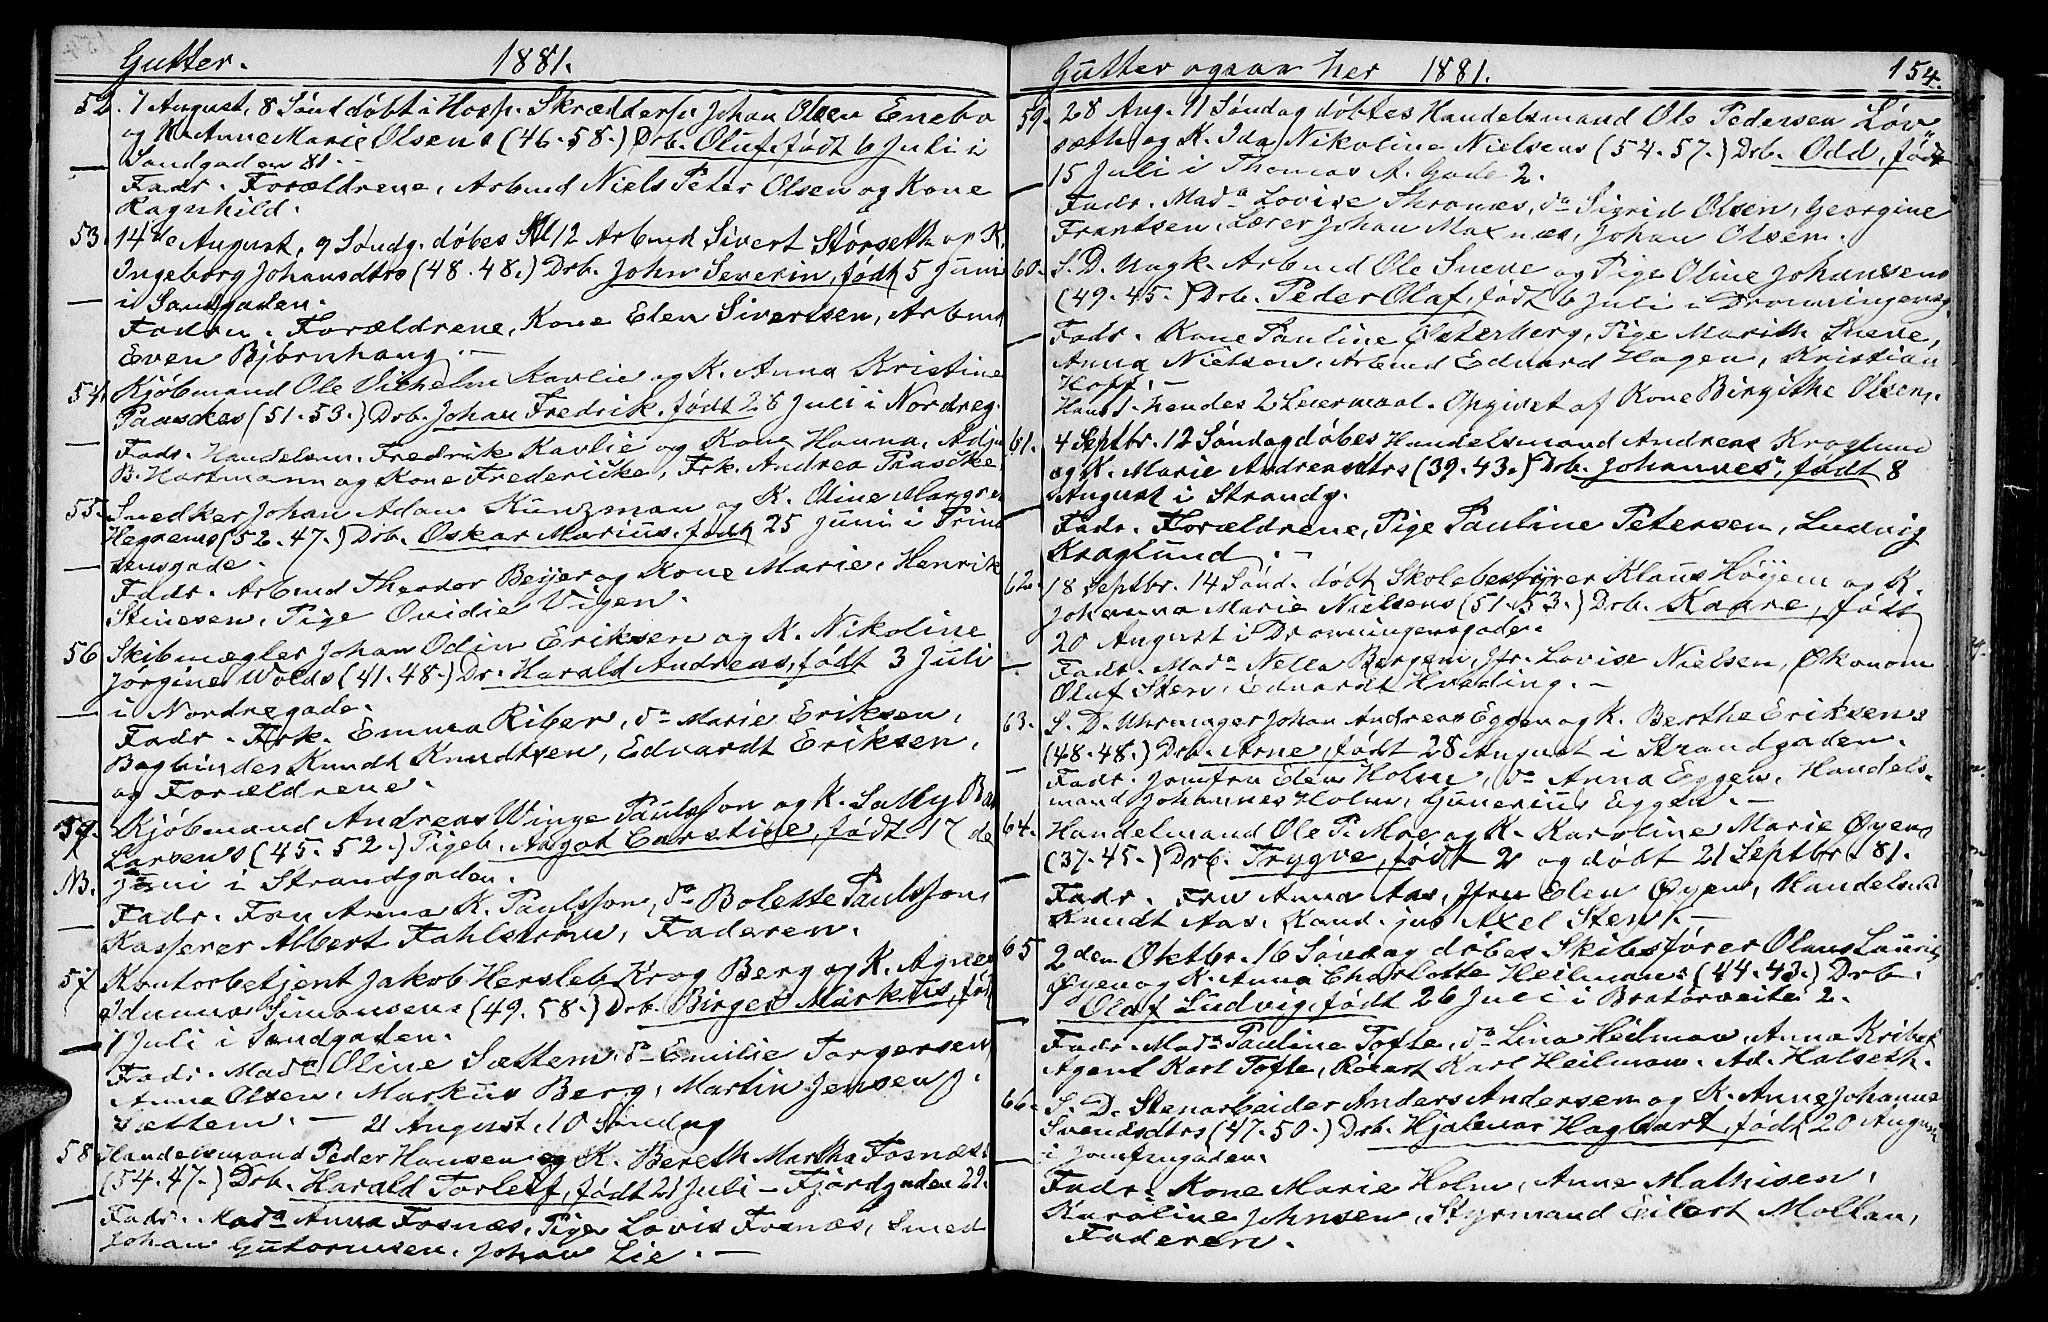 Gutter. 1881.
52. 7 August, 8 Sønd døbt i Hosp. Skrædders Johan Olsen Enebo
og K. Anne Marie Olsens (46.58.) Drb. Oluf, født 6 Juli i
Sandgaden 81.
Fadr. Forældrene, Arbmd Niels Peter Olsen og Kone
Ragnhild.
53. 14de August, 9 Søndg. døbes Kl 12 Arbmd Sivert Størseth og K.
Ingeborg Johansdtrs (48.48.) Drb. John Severin, født 5 Juni
i Sandgaden.
Fadrn. Forældrene, Kone Elen Sivertsen, Arbmd
Even Bjørnhaug.
54. Kjøbmand Ole Vilhelm Kavlie og K. Anna Kristine
Paaskes (51.53.) Drb. Johan Fredrik, født 28 Juli i Nordreg.
Fadr. Handelsm. Fredrik Kavlie og Kone Hanna, Adju
B. Hartmann og Kone Fredericke, Frk. Andrea Paaschke
55. Snedker Johan Adam Kunzman og K. Oline Margre
Hegrems (52.47.) Drb. Oskar Marius, født 25 Juni i Prind
sensgade.
Fadr. Arbmd Theodor Beijer og Kone Marie, Henrik
Stinesen, Pige Ovidie Vigen.
56 Skibmægler Johan Odin Eriksen og K. Nikoline
Jørgine Wolds (41.48.) Dr. Harald Andreas, født 3 Juli
i Nordregade.
Fadr. Frk. Emma Riber, do Marie Eriksen,
Bogbinder Knudt Knudtsen, Edvardt Eriksen,
og Forældrene.
59. Kjøbmand Andreas Winge Paulsson og K. Sally
Larsens (45.52.) Pigeb. Aagot Carstine, født 17 de
NB. Juni i Strandgaden.
Fadr. Fru Anna K. Paulsson, do Bolette Paulsson,
Kasserer Albert Fahlstrøm, Faderen.
57 Kontorbetjent Jakob Hersleb Krog Berg og K. Agnes
Idunna Simonsens (49.58.) Drb. Birger Markus, fød
7 Juli i Sandgaden.
Fadr. Mada Oline Sættem, do Emilie Torgersen,
Anna Olsen, Markus Berg, Martin Jensen J.
Sættem. — 21 August, 10 Søndag
58 Handelsmand Peder Hansen og K. Bereth Martha Fosnæs
(54.47.) Drb. Harald Torleif, født 21 Juli – Fjordgaden 29.
Fadr. Mada Anna Fosnæs, Pige Lovis Fosnæs, Smed
Johan Guttormsen, Johan Lie. —
Gutter ogsaa her 1881. 154.
59. 28 Aug. 11 Søndag døbtes Handelsmand Ole Pedersen Løv
sæth og K. Ida Nikoline Nielsens (54.57.) Drb. Odd, født
15 Juli i Thomas A. Gade 2.
Fadr. Mada Lovise Thronæs, do Sigrid Olsen, Georgine
Frantsen, Lærer Johan Moxnæs, Johan Olsen.
60. S. D. Uagk. Arbmd Ole Sneve og Pige Oline Johansens
(49.45.) Drb. Peder Olaf, født 6 Juli i Dronningensg.
Fadr. Kone Pauline Østerberg, Pige Marith Sneve,
Anna Nielsen, Arbmd Edvard Hagen, Kristian
Hoff. —
Hans 1. hendes 2 Leiermaal. Opgivet af Kone Birgithe Olsen.
61. 4 Septbr. 12 Søndag døbes Handelsmand Andreas Kroglund
og K. Marie Andreasdtrs (39.43.) Drb. Johannes, født 8
August i Strandg.
Fadr. Forældrene, Pige Pauline Petersen, Ludvig
Kroglund. —
62. 18 Septbr. 14 Sønd. døbt Skolebestyrer Klaus Høyem og K.
Johanna Marie Nielsens (51.53.) Drb. Kaare, født
20 August i Dronningensgade.
Fadr. Mada Nella Bergem, Jfr. Lovise Nielsen, Økonom
Oluf Sten, Edvardt Hveding. —
63. S. D. Uhrmager Johan Andreas Eggen og K. Berthe Eriksens
(48.48.) Drb. Arne, født 28 August i Strandgaden.
Fadr. Jomfru Elen Holm, do Anna Eggen, Handels-
mand Johannes Holm, Gunerius Eggen. —
64. Handelmand Ole P. Moe og K. Karoline Marie Øyens
(37.45.) Drb. Trygve, født 2 og døbt 21 Septbr 81.
Fadr. Fru Anna Aas, Jfru Elen Øyen, Handelsmd
Knudt Aas, Kand. jus Axel Sten. —
65 2den Oktbr. 16 Søndag døbes Skibsfører Olaus Lauritz
Øyen og K. Anna Charlotte Heilmans (44.43.) Drb.
Olaf Ludvig, født 26 Juli i Bratørveite 2.
Fadr. Mada Pauline Tofte, do Lina Heilman, Anna Kribet
Agent Karl Tofte, Karl Heilman, Ad. Halseth.
66. S. D. Stenarbeider Anders Andersen og K. Anne Johanne
Svendsdtrs (47.50.) Drb. Hjalmar Hagbart, født 20 August
i Jomfrugaden.
Fadr. Kone Marie Holm, Anne Mathisen,
Karoline Johnsen, Styrmand Eilert Moltan,
Faderen.